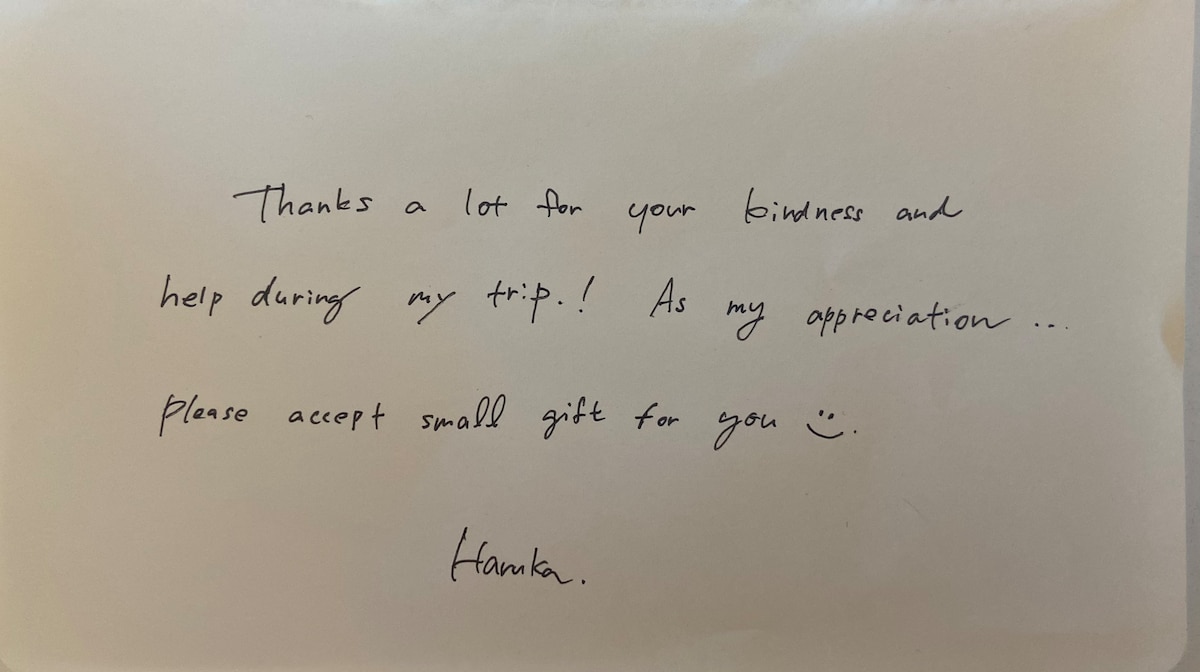 Thanks a lot for your kindness and
help during my trip.! As my appreciation ...
please accept small gift for you :).
Haruka.